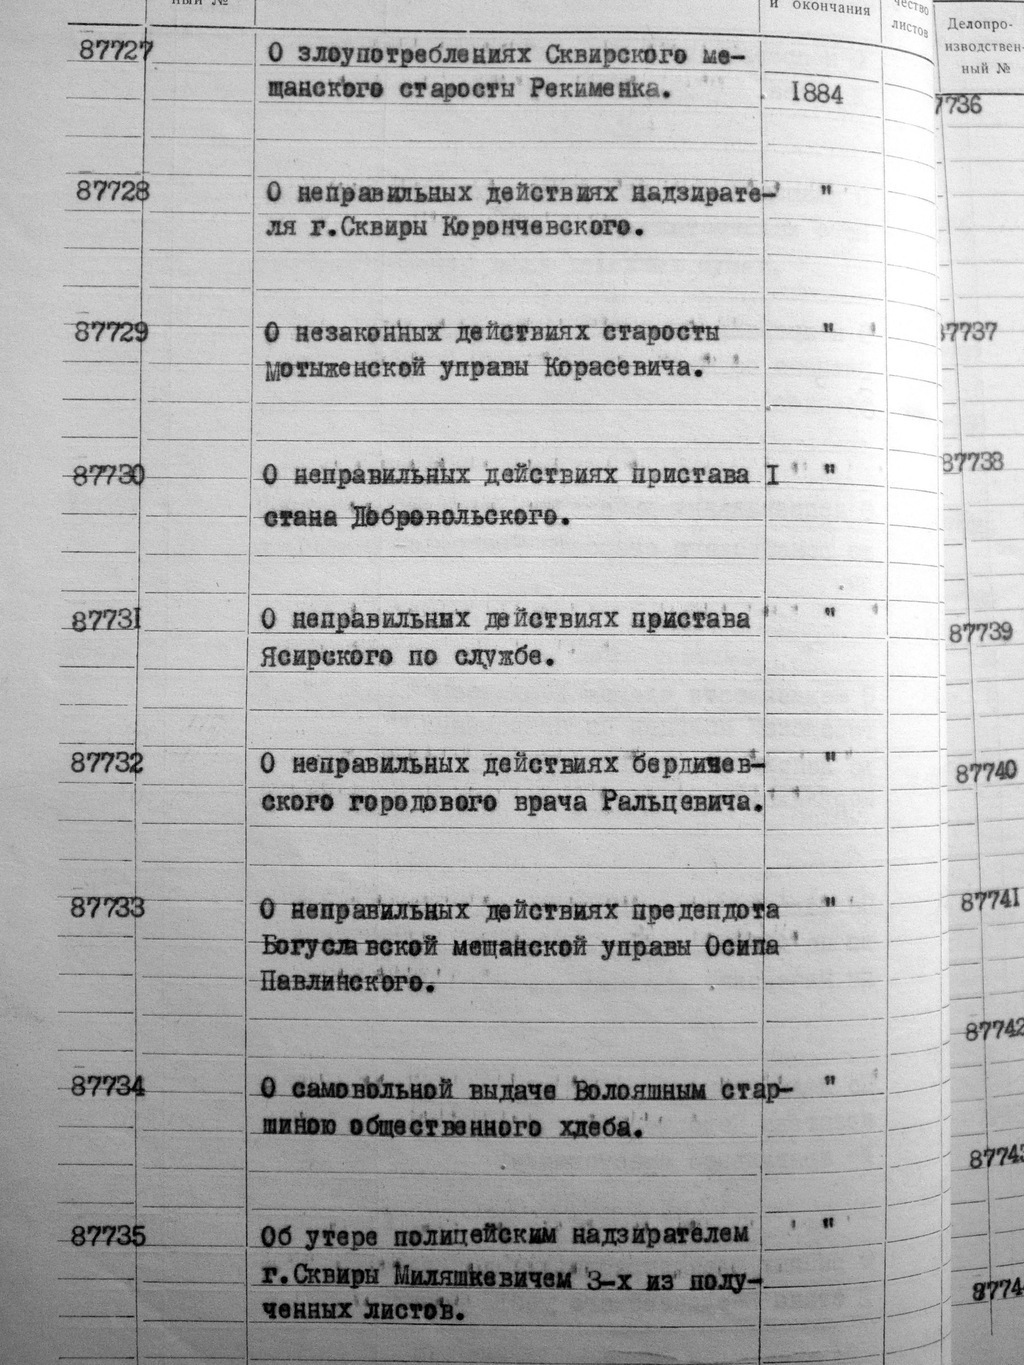 ный №
и окончания
чество
листов
Делопро-
изводствен-
ный №
87727
О злоупотреблениях Сквирского ме-
щанского старосты Рекименка.
1884
87728
О неправильных действиях надзирате- "
ля г.Сквиры Корончевского.
87729
О незаконных действиях старосты "
мотыженской управы Корасевича.
87730
О неправильных действиях пристава I "
стана Добровольского.
87731
О неправильных действиях пристава "
Ясирского по службе.
87732
О неправильных действиях бердичев- "
ского городового врача Ральцевича.
87733
О неправильных действиях предепдота "
Богуславской мещанской управы Осипа
Павлинского.
87734
О самовольной выдаче Волояшным стар- "
шиною общественного хдеба.
87735
Об утере полицейским надзирателем "
г.Сквиры Миляшкевичем 3-х из полу-
ченных листов.
7736
87737
87738
87739
87740
87741
87742
8774
8774